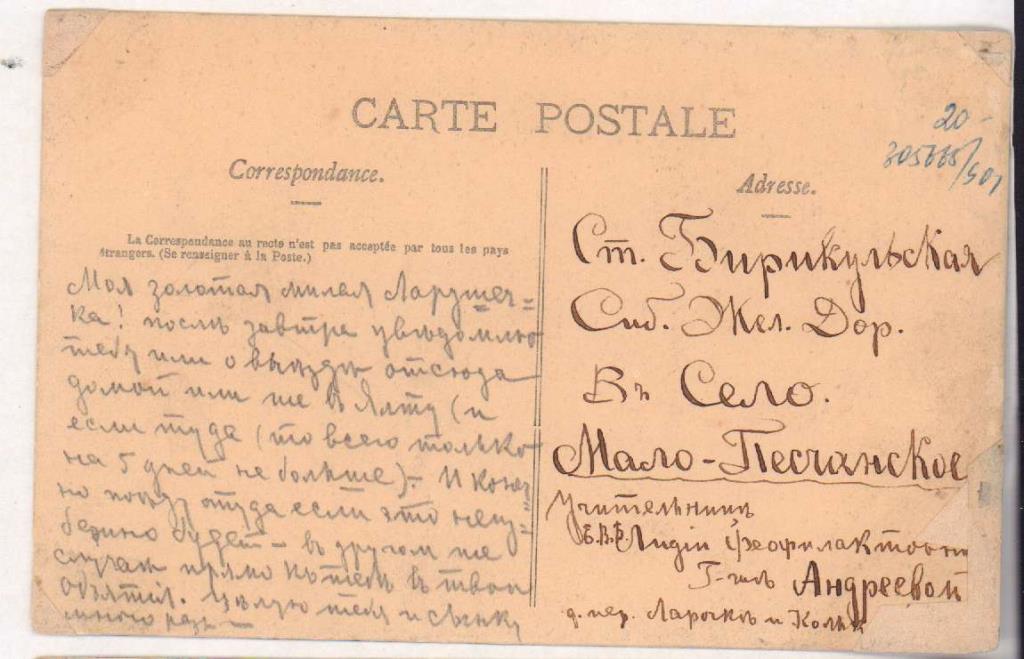 CARTE POSTALE
Correspondance.
La Correspondance au recto n'est pas acceptée par tous les pays
étrangers. (Se renseigner à la Poste.)
Моя золотая милая Ларушеч=
ка! послѣ завтра увѣдомлю
тебя или о выѣздѣ отсюда
домой или же въ Ялту (и
если туда (то всего только
на 5 дней не больше). И конеч=
но поѣду оттуда если это неиз=
бежно будетъ — въ другом же
случаѣ прямо къ тебѣ въ твои
объятія. Цѣлую тебя и
много разъ —
20-
305665/501
Adresse.
Ст. Бирикульская
Сиб. Жел. Дор.
Въ Село.
Мало-Песчанское
Учительницѣ
Е.В.Б. Лидіи Феофилактовнѣ
Г-жѣ Андреевой
д. пер. и